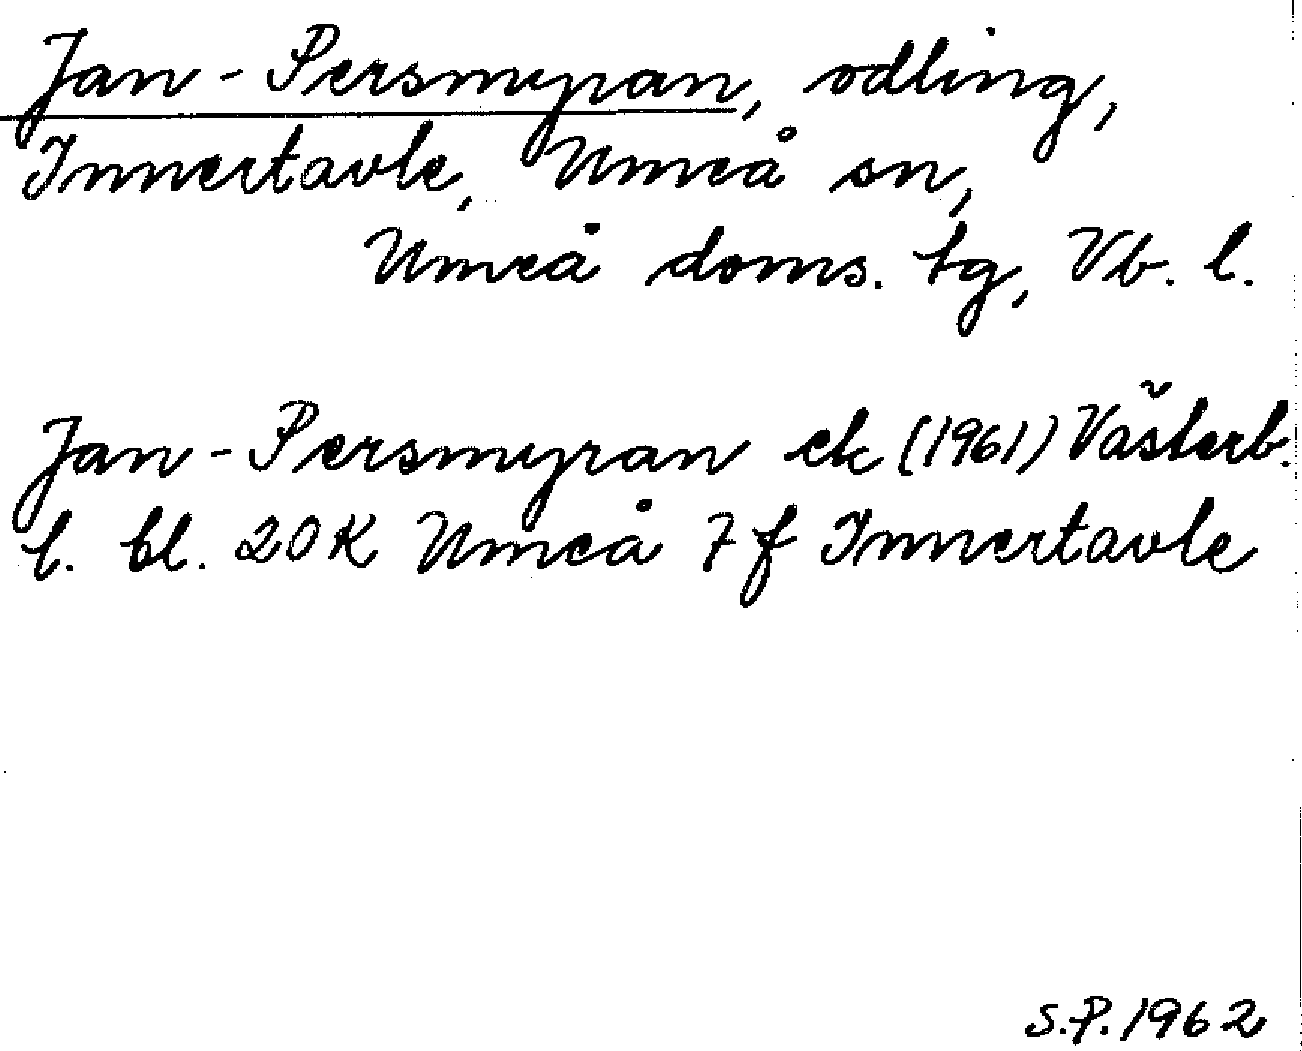 Jan-Persmyran, odling,
Innertavle, Umeå sn,
Umeå doms. tg, Vb. l.
Jan-Persmyran ek (1961) Västerb.
l. bl. 20K Umeå 7f Innertavle
S.P. 1962